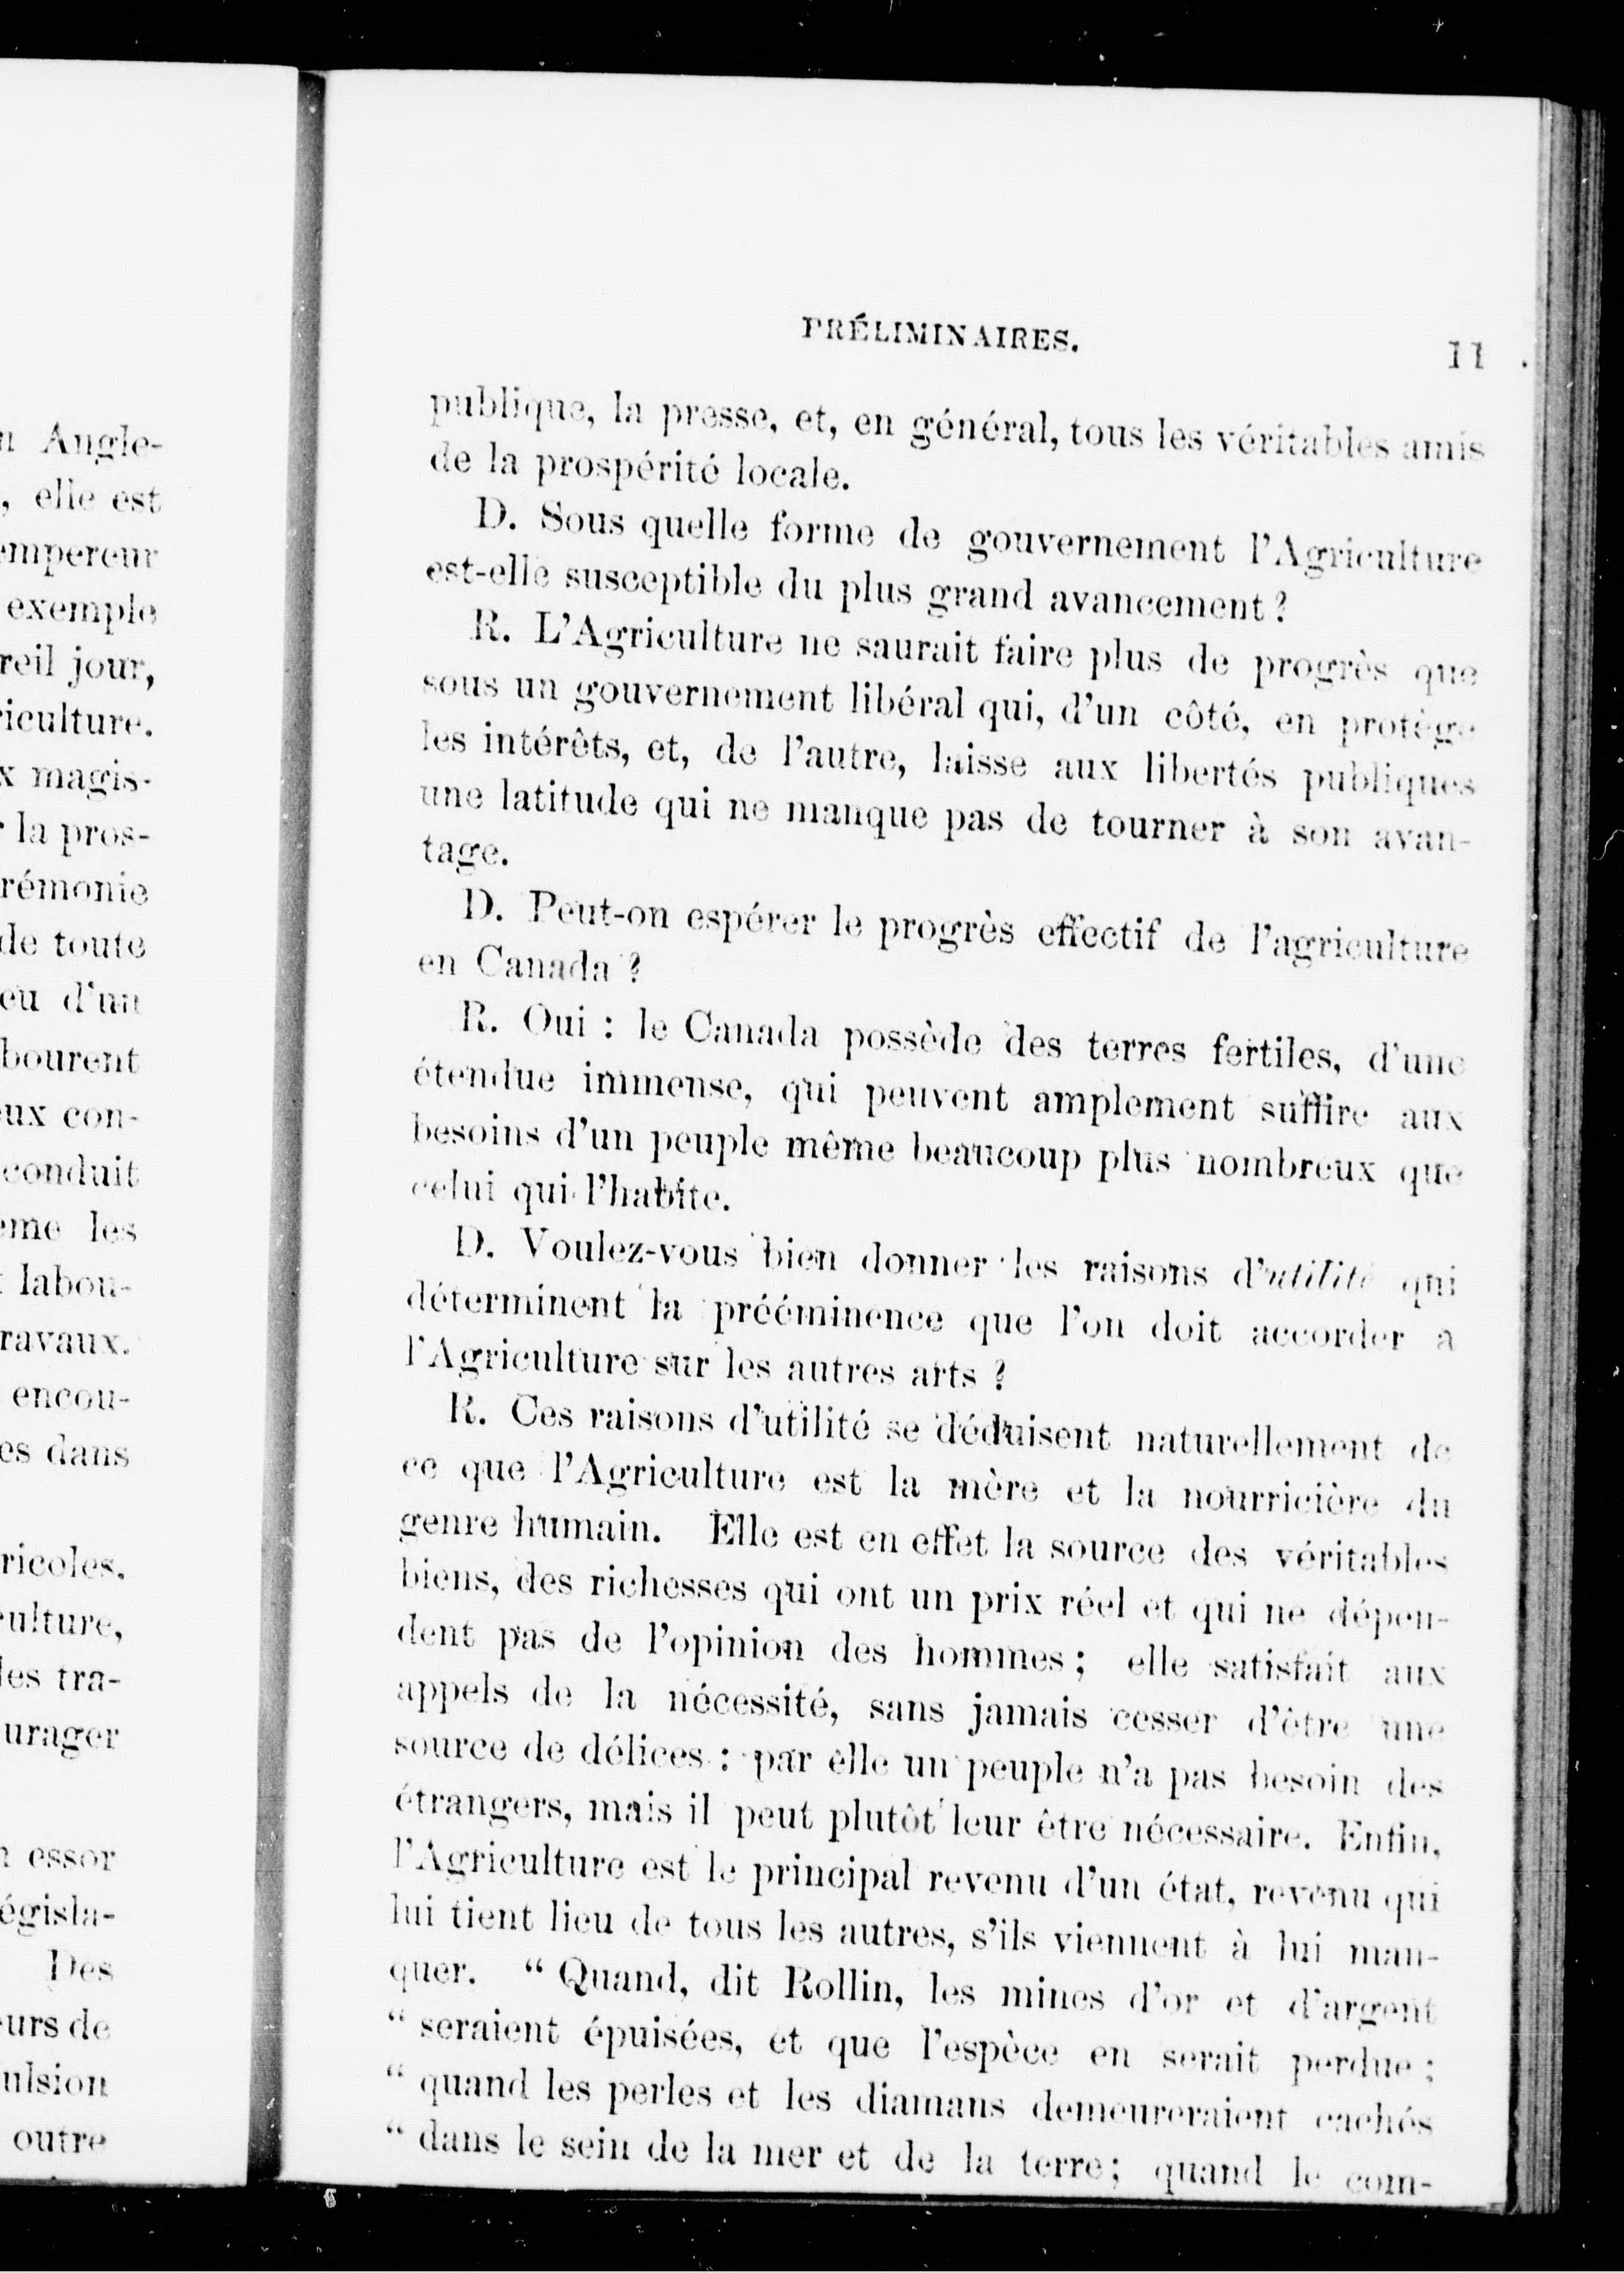 n Angle-
, elle est
empereur
exemple
reil jour,
riculture.
x magis-
r la pros-
rémonie
de toute
eu d'un
bourent
eux con-
conduit
ême les
labou-
ravaux.
encou-
es dans
ricoles.
culture,
les tra-
urager
n essor
égisla-
Des
eurs de
ulsion
outre
PRÉLIMINAIRES.
11
publique, la presse, et, en général, tous les véritables amis
de la prospérité locale.
D. Sous quelle forme de gouvernement l'Agriculture
est-elle susceptible du plus grand avancement ?
R. L'Agriculture ne saurait faire plus de progrès que
sous un gouvernement libéral qui, d'un côté, en protège
les intérêts, et, de l'autre, laisse aux libertés publiques
une latitude qui ne manque pas de tourner à son avan-
tage.
D. Peut-on espérer le progrès effectif de l'agriculture
en Canada ?
R. Oui : le Canada possède des terres fertiles, d'une
étendue immense, qui peuvent amplement suffire aux
besoins d'un peuple même beaucoup plus nombreux que
celui qui l'habite.
D. Voulez-vous bien donner les raisons d'utilité qui
déterminent la prééminence que l'on doit accorder a
l'Agriculture sur les autres arts ?
R. Ces raisons d'utilité se déduisent naturellement de
ce que l'Agriculture est la mère et la nourricière du
genre humain. Elle est en effet la source des véritables
biens, des richesses qui ont un prix réel et qui ne dépen-
dent pas de l'opinion des hommes ; elle satisfait aux
appels de la nécessité, sans jamais cesser d'être une
source de délices : par elle un peuple n'a pas besoin des
étrangers, mais il peut plutôt leur être nécessaire. Enfin,
l'Agriculture est le principal revenu d'un état, revenu qui
lui tient lieu de tous les autres, s'ils viennent à lui man-
quer. “ Quand, dit Rollin, les mines d'or et d'argent
“ seraient épuisées, et que l'espèce en serait perdue ;
“ quand les perles et les diamans demeureraient cachés
“ dans le sein de la mer et de la terre ; quand le com-